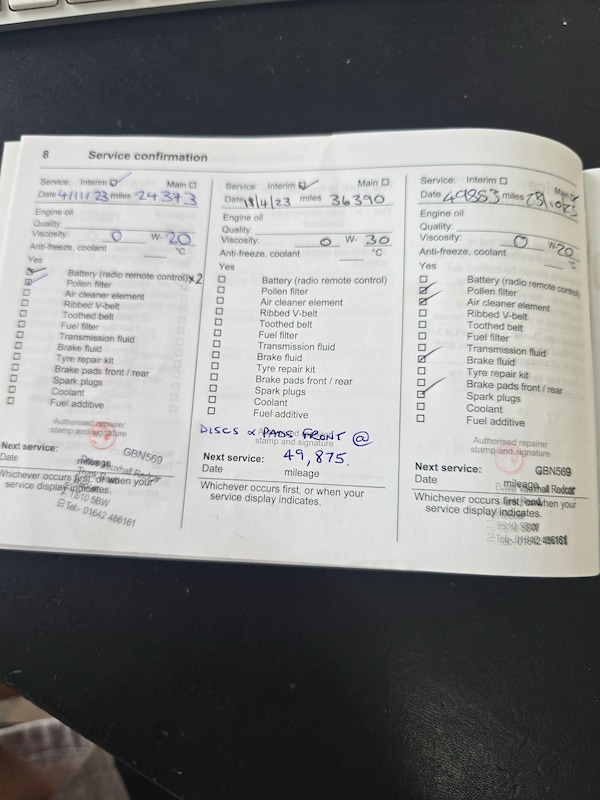 8 Service confirmation
Service: Interim Main
Date 4/11/23 miles 24373
Engine oil
Quality:
Viscosity: 0 W- 20
Anti-freeze, coolant °C
Yes
Battery (radio remote control) x2
Pollen filter
Air cleaner element
Ribbed V-belt
Toothed belt
Fuel filter
Transmission fluid
Brake fluid
Tyre repair kit
Brake pads front / rear
Spark plugs
Coolant
Fuel additive
Authorised repairer
stamp and signature
Next service: GBN569
Date mileage Vauxhall Redcar
Whichever occurs first, or when your
service display indicates.
TS10 5BW
Tel:- 01642 486161
Service: Interim Main
Date 18/4/23 miles 36390
Engine oil
Quality:
Viscosity: 0 W- 30
Anti-freeze, coolant °C
Yes
Battery (radio remote control)
Pollen filter
Air cleaner element
Ribbed V-belt
Toothed belt
Fuel filter
Transmission fluid
Brake fluid
Tyre repair kit
Brake pads front / rear
Spark plugs
Coolant
Fuel additive
DISCS & PADS FRONT @
stamp and signature
49,875.
Next service:
Date mileage
Whichever occurs first, or when your
service display indicates.
Service: Interim Main
Date 49853 miles
Engine oil
Quality:
Viscosity: 0 W- 20
Anti-freeze, coolant °C
Yes
Battery (radio remote control)
Pollen filter
Air cleaner element
Ribbed V-belt
Toothed belt
Fuel filter
Transmission fluid
Brake fluid
Tyre repair kit
Brake pads front / rear
Spark plugs
Coolant
Fuel additive
Authorised repairer
stamp and signature
Next service: GBN569
Date mileage Vauxhall Redcar
Whichever occurs first, or when your
service display indicates.
TS10 5BW
Tel:- 01642 486161